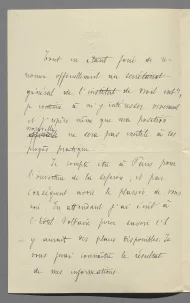 Tout en étant forcé de re-
noncer officiellement au secrétariat-
général de l'institut de droit int.,
je continue à m'y intéresser vivement
et j'espère même que ma position
nouvelle ne sera pas inutile à ses
progrès pratiques.
Je compte être à Paris pour
l'ouverture de la , et par
conséquent avoir le plaisir de vous
voir. En attendant j'ai écrit à
l'hôtel Voltaire pour savoir s'il
y aurait des places disponibles. Je
vous ferai connaître le résultat
de mes informations.